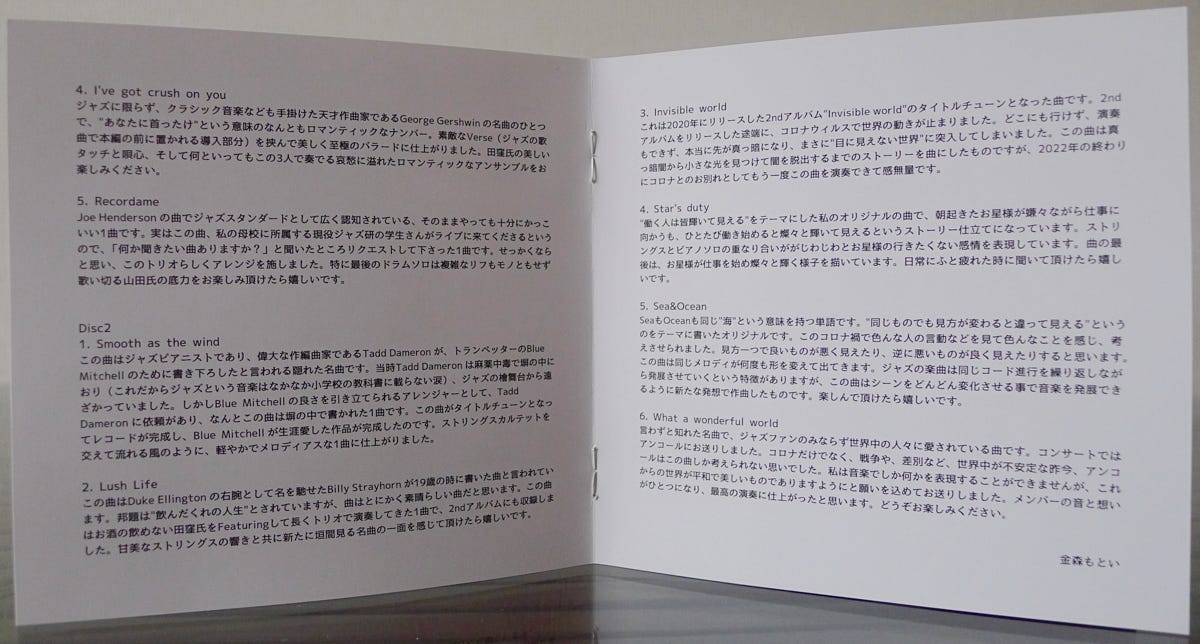 4. I've got crush on you
ジャズに限らず、クラシック音楽なども手掛けた天才作曲家であるGeorge Gershwin の名曲のひとつ
で、"あなたに首ったけ"という意味のなんともロマンティックなナンバー。素敵なVerse（ジャズの歌
曲で本編の前に置かれる導入部分）を挟んで美しく至極のバラードに仕上がりました。田窪氏の美しい
タッチと唄心、そして何といってもこの3人で奏でる哀愁に溢れたロマンティックなアンサンブルをお
楽しみください。
5. Recordame
Joe Henderson の曲でジャズスタンダードとして広く認知されている、そのままやっても十分にかっこ
いい1曲です。実はこの曲、私の母校に所属する現役ジャズ研の学生さんがライブに来てくださるという
ので、「何か聞きたい曲ありますか？」と聞いたところリクエストして下さった1曲です。せっかくなら
と思い、このトリオらしくアレンジを施しました。特に最後のドラムソロは複雑なリフもモノともせず
歌い切る山田氏の底力をお楽しみ頂けたら嬉しいです。
Disc2
1. Smooth as the wind
この曲はジャズピアニストであり、偉大な作編曲家であるTadd Dameron が、トランペッターのBlue
Mitchell のために書き下ろしたと言われる隠れた名曲です。当時Tadd Dameron は麻薬中毒で塀の中に
おり（これだからジャズという音楽はなかなか小学校の教科書に載らない涙）、ジャズの檜舞台から遠
ざかっていました。しかしBlue Mitchell の良さを引き立てられるアレンジャーとして、Tadd
Dameron に依頼があり、なんとこの曲は塀の中で書かれた1曲です。この曲がタイトルチューンとなっ
てレコードが完成し、Blue Mitchell が生涯愛した作品が完成したのです。ストリングスカルテットを
交えて流れる風のように、軽やかでメロディアスな1曲に仕上がりました。
2. Lush Life
この曲はDuke Ellington の右腕として名を馳せたBilly Strayhorn が19歳の時に書いた曲と言われてい
ます。邦題は"飲んだくれの人生"とされていますが、曲はとにかく素晴らしい曲だと思います。この曲
はお酒の飲めない田窪氏をFeaturingして長くトリオで演奏してきた1曲で、2ndアルバムにも収録しま
した。甘美なストリングスの響きと共に新たに垣間見る名曲の一面を感じて頂けたら嬉しいです。
3. Invisible world
これは2020年にリリースした2ndアルバム"Invisible world"のタイトルチューンとなった曲です。2nd
アルバムをリリースした途端に、コロナウィルスで世界の動きが止まりました。どこにも行けず、演奏
もできず、本当に先が真っ暗になり、まさに"目に見えない世界"に突入してしまいました。この曲は真
っ暗闇から小さな光を見つけて闇を脱出するまでのストーリーを曲にしたものですが、2022年の終わり
にコロナとのお別れとしてもう一度この曲を演奏できて感無量です。
4. Star's duty
"働く人は皆輝いて見える"をテーマにした私のオリジナルの曲で、朝起きたお星様が嫌々ながら仕事に
向かうも、ひとたび働き始めると燦々と輝いて見えるというストーリー仕立てになっています。ストリ
ングスとピアノソロの重なり合いががじわじわとお星様の行きたくない感情を表現しています。曲の最
後は、お星様が仕事を始め燦々と輝く様子を描いています。日常にふと疲れた時に聞いて頂けたら嬉し
いです。
5. Sea&Ocean
SeaもOceanも同じ"海"という意味を持つ単語です。"同じものでも見方が変わると違って見える"という
のをテーマに書いたオリジナルです。このコロナ禍で色んな人の言動などを見て色んなことを感じ、考
えさせられました。見方一つで良いものが悪く見えたり、逆に悪いものが良く見えたりすると思います。
この曲は同じメロディが何度も形を変えて出てきます。ジャズの楽曲は同じコード進行を繰り返しなが
ら発展させていくという特徴がありますが、この曲はシーンをどんどん変化させる事で音楽を発展でき
るように新たな発想で作曲したものです。楽しんで頂けたら嬉しいです。
6. What a wonderful world
言わずと知れた名曲で、ジャズファンのみならず世界中の人々に愛されている曲です。コンサートでは
アンコールにお送りしました。コロナだけでなく、戦争や、差別など、世界中が不安定な昨今、アンコ
ールはこの曲しか考えられない思いでした。私は音楽でしか何かを表現することができませんが、これ
からの世界が平和で美しいものでありますようにと願いを込めてお送りしました。メンバーの音と想い
がひとつになり、最高の演奏に仕上がったと思います。どうぞお楽しみください。
金森もとい